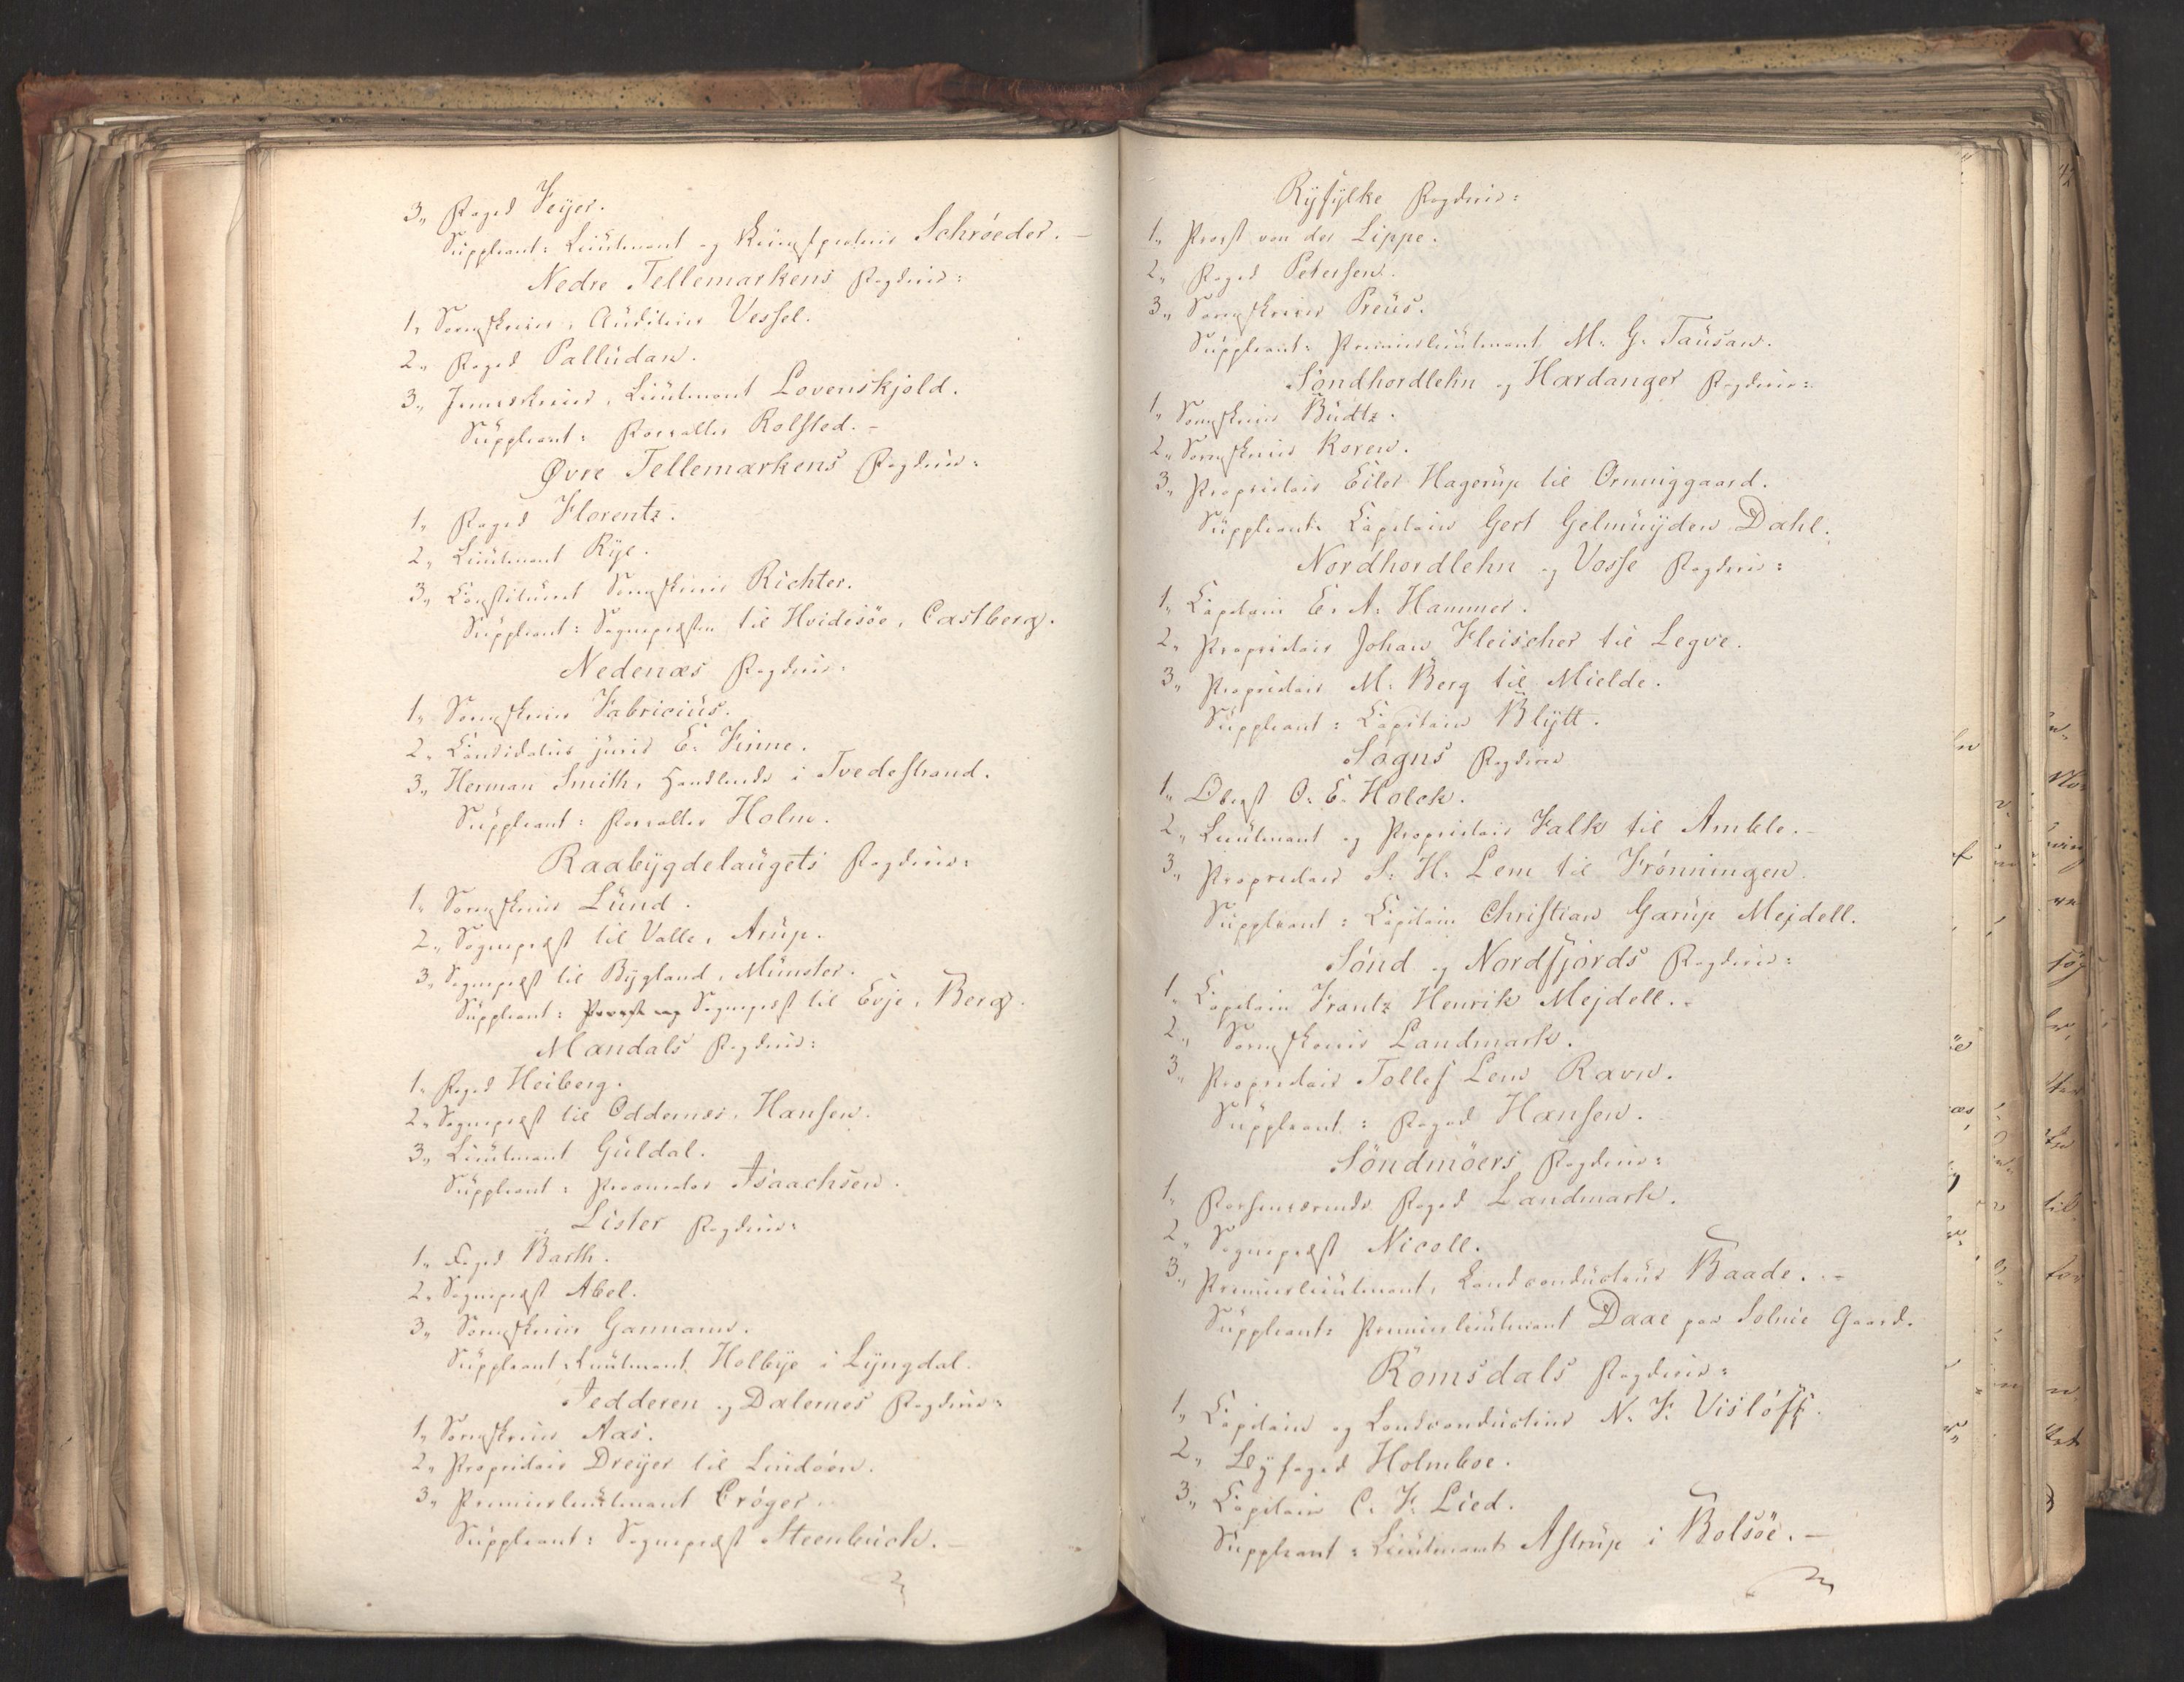 3, Foged Feyer.
Suppleant: Lieutenant og Schrøeder. -
Nedre Tellemarkens Fogderie:
1, Sorenskriver, Auditeur Vessel.
2, Foged Palludan.
3, Lieutenant Lovenskjold.
Suppleant: Forvalter Rolsted. -
Øvre Tellemarkens Fogderie:
1, Foged Florentz.
2, Lieutenant Rye.
3, Constitueret Sorenskriver Richter.
Suppleant: Sognepræsten til Hvidesöe, Castberg.
Nedenæs Fogderie:
1, Sorenskriver Fabricius.
2, Candidatus juris E. Finne.
3, Herman Smith, Handlende i Tvedestrand.
Suppleant: Forvalter Holm.
Raabygdelaugets Fogderie:
1, Sorenskriver Lund.
2, Sognepræst til Valle, Arup.
3, Sognepræst til Bygland, Münster.
Suppleant: Provst og Sognepræst til Evje, Berg.
Mandals Fogderie:
1, Foged Heiberg.
2, Sognepræst til Oddernæs, Hansen.
3, Lieutenant Guldal.
Suppleant: Procurator Isaachsen.
Lister Fogderie:
1, Foged Barth.
2, Sognepræst Abel.
3, Sorenskriver Garmann.
Suppleant: Lieutenant Holbye i Lyngdal.
Jedderen og Dalernes Fogderie:
1, Sorenskriver Aas.
2, Proprietair Dreyer til Lindöen.
3, Premierlieutenant Cröger.
Suppleant: Sognepræst Steenbuch. -
Ryfylke Fogderie:
1, Provst von der Lippe.
2, Foged Petersen.
3, Sorenskriver Preus.
Suppleant: Premierlieutenant M. G. Tausan.
Söndhordlehn og Hardanger Fogderie:
1, Sorenskriver Budtz.
2, Sorenskriver Koren.
3, Proprietair Eiler Hagerup til Ornniggaard.
Suppleant: Capitain Gert Gelmuyden Dahl.
Nordhordlehn og Vosse Fogderie:
1, Capitain E. A. Hammer.
2, Proprietair Johan Fleischer til Legve.
3, Proprietair M. Berg til Mielde.
Suppleant: Capitain Blytt.
Sogns Fogderie
1, Oberst O. E. Holck.
2, Lieutenant og Proprietair Falk til Amble. -
3, Proprietair S. H. Lem til Frønningen.
Suppleant: Capitain Christian Garup Mejdell.
Sönd og Nordfjords Fogderie:
1, Capitain Frantz Henrik Mejdell. -
2, Sorenskriver Landmark.
3, Proprietair Tollef Lem Ravn.
Suppleant: Foged Hansen.
Söndmöers Fogderie:
1, Forhenværende Foged Landmark.
2, Sognepræst Nicoll.
3, Premierlieutenant, Landconducteur Baade. -
Suppleant: Premierlieutenant Daae paa Solnie Gaard.
Romsdals Fogderie:
1, Capitain og Landconducteur N. F. Vislöff.
2, Byfoged Holmboe.
3, Capitain C. F. Lied.
Suppleant: Lieutenant Astrup i Bolsöe. -